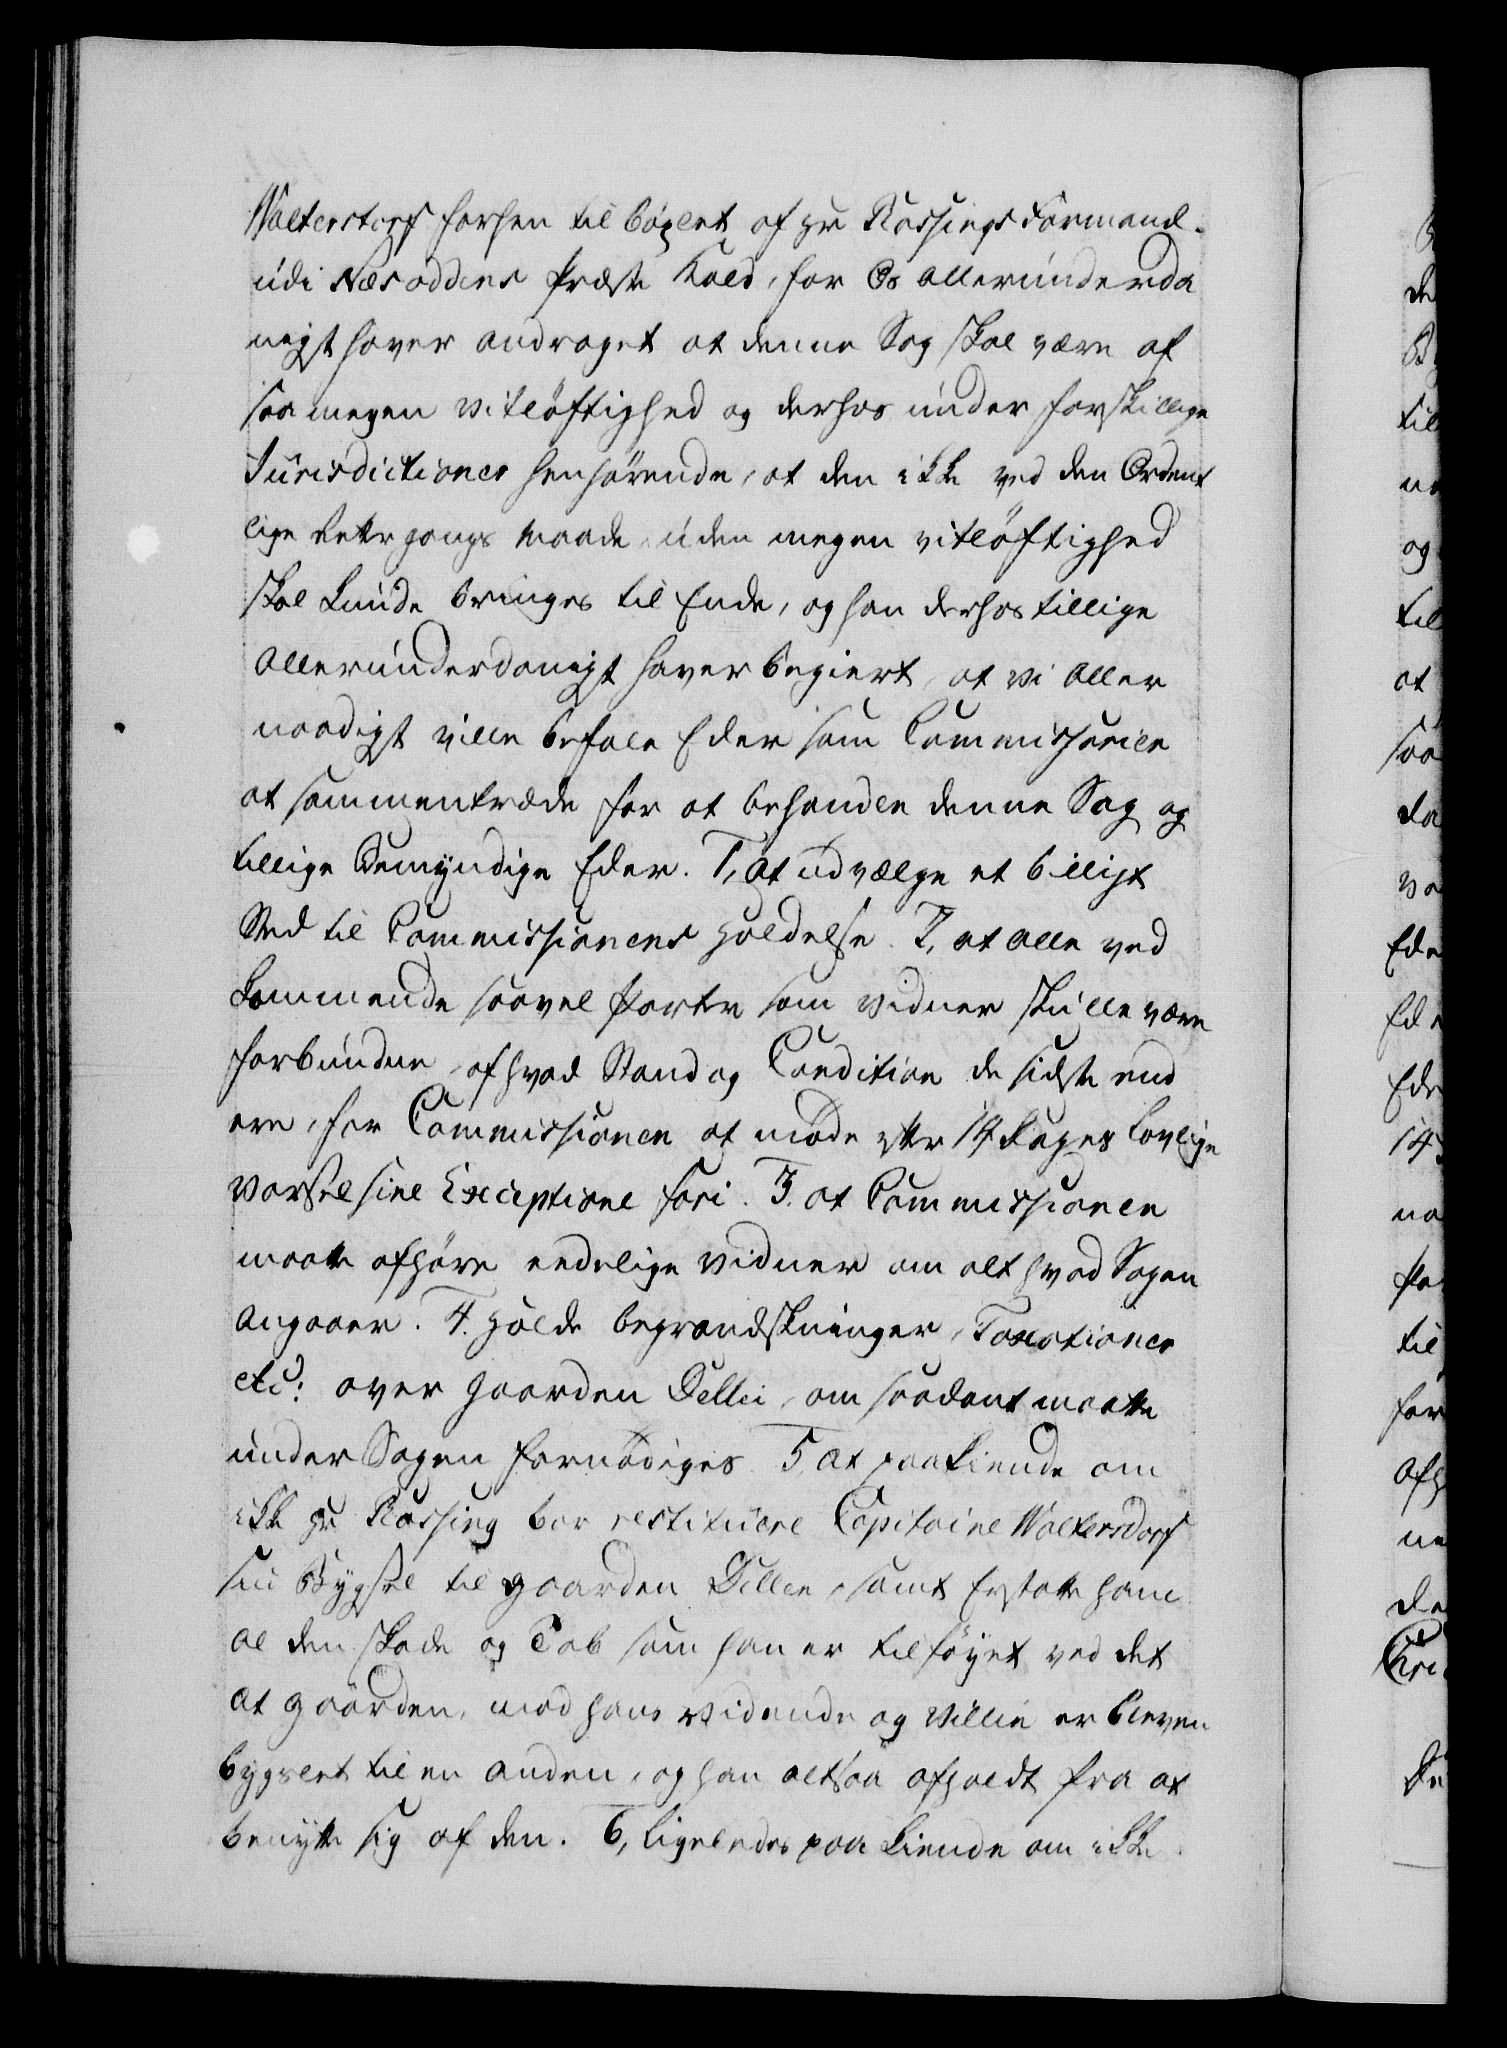 Walterstorf forhen til bøxlet af Hr Rossings Formand
udi Næsoddens Præste Kald, for Os allerunderda
nigst haver andraget at denne Sag skal være af
saa megen Vitløftighed og derhos under forskillige
Jurisdictioner henhørende, at den ikke ved den Ordent
lige Rettergangs Maade uden megen vitløftighed
skal kunde bringes til Ende, og han derhos tillige
Allerunderdanigst haver begiert, at vi Aller
naadigst ville befale Eder som Commissarier
at sammentræde for at behandle denne Sag og
tillige Bemyndige Eder. 1, at udvælge et billigt
Sted til Commissionens Holdelse. 2, at alle ved
kommende saavel Parter som Vidner skulle være
forbundne, af hvad Stand og Condition de sidste end
ere, for Commissionen at møde efter 14 Dages lovlige
Varsel sine Exceptione fori. 3. at Commissionen
maatte afhøre eedelige Vidner om alt hvad Sagen
angaaer. 4. Holde begrandskninger, Taxationer
etc: over Gaarden Dellii, om saadant maatte
under Sagen fornødiges 5, at paakiende om
ikke Hr Rossing bør restituere Capitaine Woltersdorf
sin Bygsel til Gaarden Dillie, samt Erstatte ham
al den skade og Tab som han er tilføyet ved det
at Gaarden, mod hans Vidende og Villie er bleven
bygslet til en anden, og han altsaa afholdt fra at
benytte sig af den. 6, ligeledes paa kiende om ikke